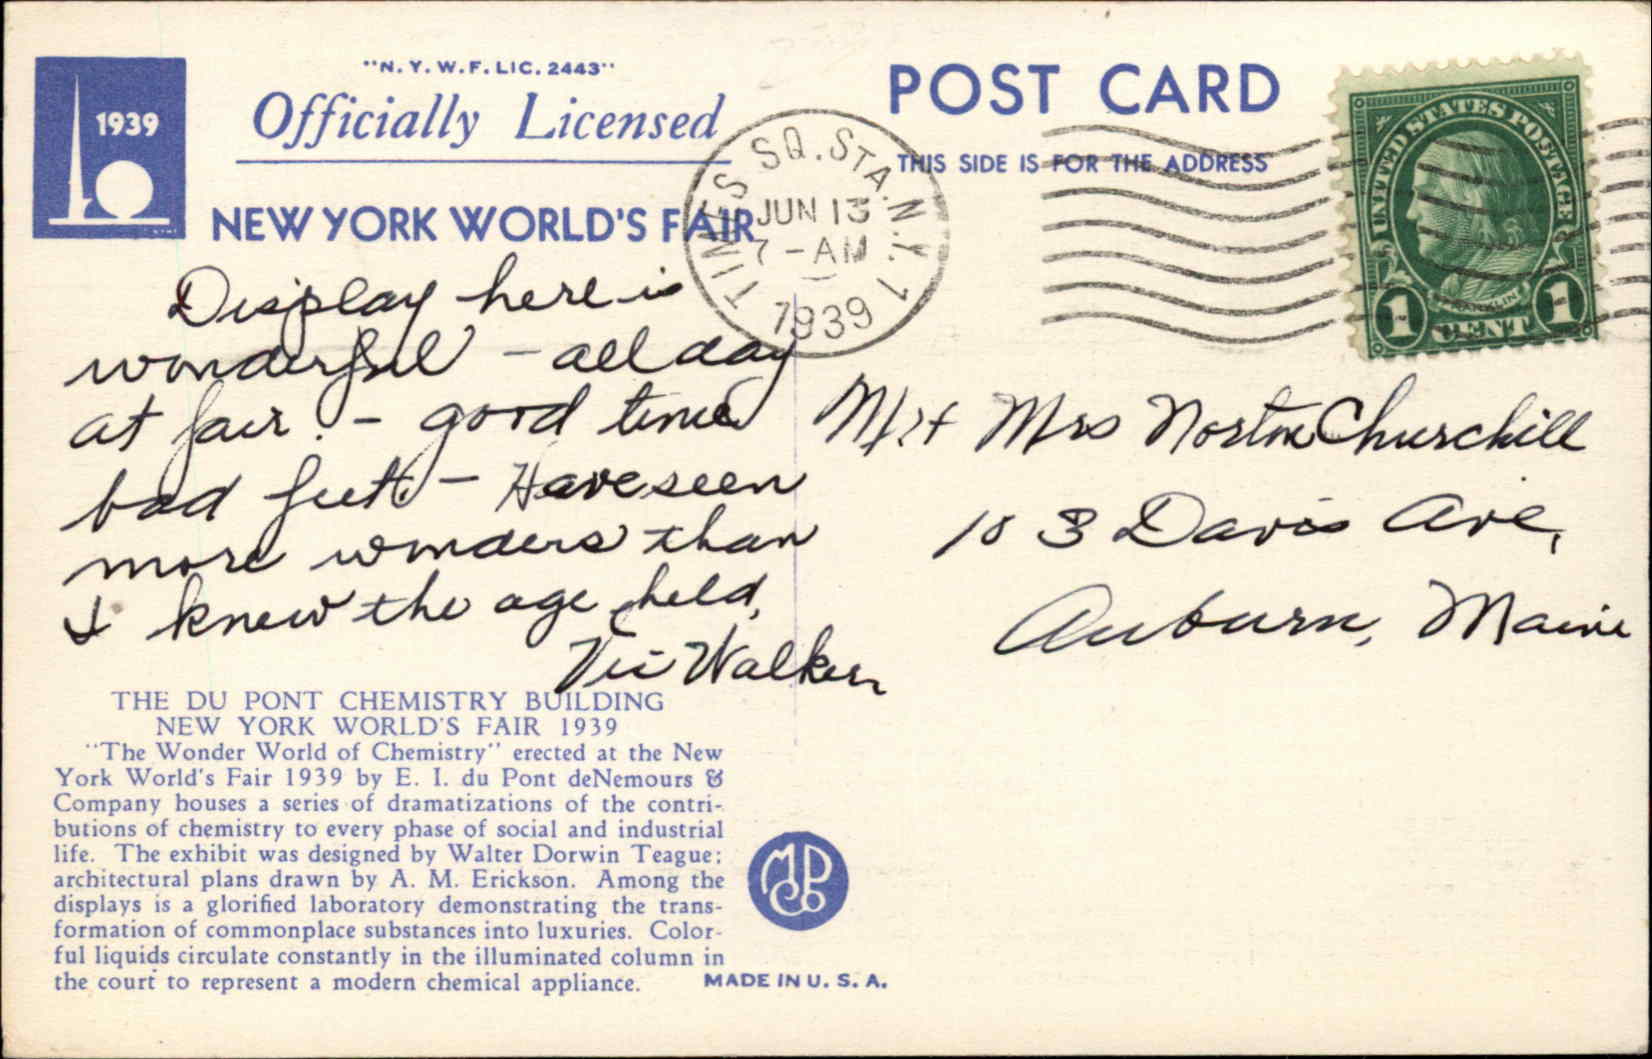 "N.Y.W.F. LIC. 2443"
1939
Officially Licensed
NEW YORK WORLD'S FAIR
POST CARD
THIS SIDE IS FOR THE ADDRESS
TIMES SQ. STA. N.Y. 1
JUN 13
7-AM
1939
UNITED STATES POSTAGE
FRANKLIN
1 CENT 1
Display here is
wonderful - all day
at fair. - good time
bad feet - Have seen
more wonders than
I knew the age held,
Vic Walker
Mr + Mrs Norton Churchill
103 Davis Ave,
Auburn, Maine
THE DU PONT CHEMISTRY BUILDING
NEW YORK WORLD'S FAIR 1939
"The Wonder World of Chemistry" erected at the New
York World's Fair 1939 by E. I. du Pont deNemours &
Company houses a series of dramatizations of the contri-
butions of chemistry to every phase of social and industrial
life. The exhibit was designed by Walter Dorwin Teague;
architectural plans drawn by A. M. Erickson. Among the
displays is a glorified laboratory demonstrating the trans-
formation of commonplace substances into luxuries. Color-
ful liquids circulate constantly in the illuminated column in
the court to represent a modern chemical appliance.
MADE IN U. S. A.